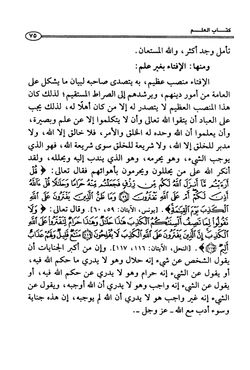 كتاب العلم
٧٥
تأمل وجد أكثر، والله المستعان.
ومنها: الإفتاء بغير علم:
الإفتاء منصب عظيم، به يتصدى صاحبه لبيان ما يشكل على
العامة من أمور دينهم، ويرشدهم إلى الصراط المستقيم؛ لذلك كان
هذا المنصب العظيم لا يتصدر له إلا من كان أهلًا له، لذلك يجب
على العباد أن يتقوا الله تعالى وأن لا يتكلموا إلا عن علم وبصيرة،
وأن يعلموا أن الله وحده له الخلق والأمر، فلا خالق إلا الله، ولا
مدبر للخلق إلا الله، ولا شريعة للخلق سوى شريعة الله، فهو الذي
يوجب الشيء، وهو يحرمه، وهو الذي يندب إليه ويحلله، ولقد
أنكر الله على من يحللون ويحرمون بأهوائهم فقال تعالى: ﴿ قُلْ
أَرَءَيْتُم مَّا أَنزَلَ اللَّهُ لَكُم مِّن رِّزْقٍ فَجَعَلْتُم مِّنْهُ حَرَامًا وَحَلَالًا قُلْ ءَاللَّهُ
أَذِنَ لَكُمْ أَمْ عَلَى اللَّهِ تَفْتَرُونَ (٥٩) وَمَا ظَنُّ الَّذِينَ يَفْتَرُونَ عَلَى اللَّهِ
الْكَذِبَ يَوْمَ الْقِيَامَةِ﴾ [يونس، الآيتان: ٥٩، ٦٠]. وقال تعالى: ﴿ وَلَا
تَقُولُوا لِمَا تَصِفُ أَلْسِنَتُكُمُ الْكَذِبَ هَٰذَا حَلَالٌ وَهَٰذَا حَرَامٌ لِّتَفْتَرُوا عَلَى اللَّهِ
الْكَذِبَ إِنَّ الَّذِينَ يَفْتَرُونَ عَلَى اللَّهِ الْكَذِبَ لَا يُفْلِحُونَ (١١٦) مَتَاعٌ قَلِيلٌ وَلَهُمْ عَذَابٌ
أَلِيمٌ (١١٧)﴾ [النحل، الآيتان: ١١٦، ١١٧]. وإن من أكبر الجنايات أن
يقول الشخص عن شيء إنه حلال وهو لا يدري ما حكم الله فيه،
أو يقول عن الشيء إنه حرام وهو لا يدري عن حكم الله فيه، أو
يقول عن الشيء إنه واجب وهو لا يدري أن الله أوجبه، ويقول عن
الشيء إنه غير واجب هو لا يدري أن الله لم يوجبه، إن هذه جناية
وسوء أدب مع الله ـ عز وجل ـ.